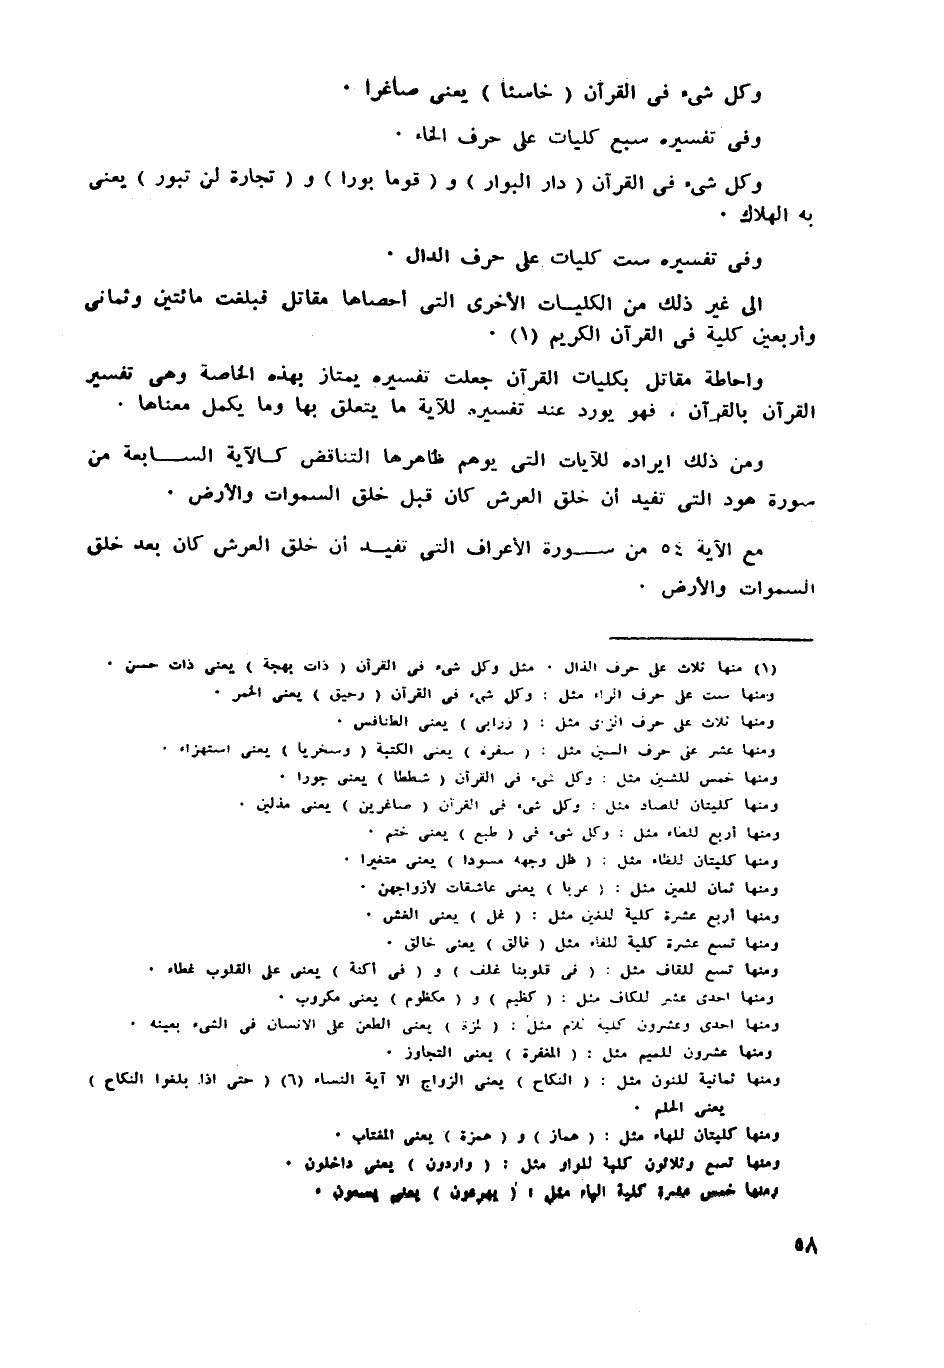 وكل شىء فى القرآن ( خاسئا ) يعنى صاغرا ٠
وفى تفسيره سبع كليات على حرف الخاء ٠
وكل شىء فى القرآن ( دار البوار ) و ( قوما بورا ) و ( تجارة لن تبور ) يعنى
به الهلاك ٠
وفى تفسيره ست كليات على حرف الدال ٠
الى غير ذلك من الكليات الأخرى التى أحصاها مقاتل فبلغت مائتين وثمانى
وأربعين كلية فى القرآن الكريم (١) ٠
واحاطة مقاتل بكليات القرآن جعلت تفسيره يمتاز بهذه الخاصة وهى تفسير
القرآن بالقرآن ، فهو يورد عند تفسيره للآية ما يتعلق بها وما يكمل معناها ٠
ومن ذلك ايراده للآيات التى يوهم ظاهرها التناقض كالآية السابعة من
سورة هود التى تفيد أن خلق العرش كان قبل خلق السموات والأرض ٠
مع الآية ٥٤ من سورة الأعراف التى تفيد أن خلق العرش كان بعد خلق
السموات والأرض ٠
(١) منها ثلاث على حرف الذال ٠ مثل وكل شىء فى القرآن ( ذات بهجة ) يعنى ذات حسن ٠
ومنها ست على حرف الراء مثل : وكل شىء فى القرآن ( رحيق ) يعنى الخمر ٠
ومنها ثلاث على حرف الزاى مثل : ( زرابى ) يعنى الطنافس ٠
ومنها عشر على حرف السين مثل : ( سفرة ) يعنى الكتبة ( وسخريا ) يعنى استهزاء ٠
ومنها خمس للشين مثل : وكل شىء فى القرآن ( شططا ) يعنى جورا ٠
ومنها كليتان للصاد مثل : وكل شىء فى القرآن ( صاغرين ) يعنى مذلين ٠
ومنها أربع للطاء مثل : وكل شىء فى ( طبع ) يعنى ختم ٠
ومنها كليتان للظاء مثل : ( ظل وجهه مسودا ) يعنى متغيرا ٠
ومنها ثمان للعين مثل : ( عربا ) يعنى عاشقات لأزواجهن ٠
ومنها أربع عشرة كلية للغين مثل : ( غل ) يعنى الغش ٠
ومنها تسع عشرة كلية للفاء مثل ( فالق ) يعنى خالق ٠
ومنها تسع للقاف مثل : ( فى قلوبنا غلف ) و ( فى أكنة ) يعنى على القلوب غطاء ٠
ومنها احدى عشر للكاف مثل : ( كظيم ) و ( مكظوم ) يعنى مكروب ٠
ومنها احدى وعشرون كلية للام مثل : ( لمزة ) يعنى الطعن على الانسان فى الشىء بعينه ٠
ومنها عشرون للميم مثل : ( المغفرة ) يعنى التجاوز ٠
ومنها ثمانية للنون مثل : ( النكاح ) يعنى الزواج الا آية النساء (٦) ( حتى اذا بلغوا النكاح )
يعنى الحلم ٠
ومنها كليتان للهاء مثل : ( هماز ) و ( همزة ) يعنى المغتاب ٠
ومنها تسع وثلاثون كلية للواو مثل : ( واردون ) يعنى داخلون ٠
ومنها خمس عشرة كلية الياء مثل : ( يهرعون ) يعنى يسعون ٠
٥٨